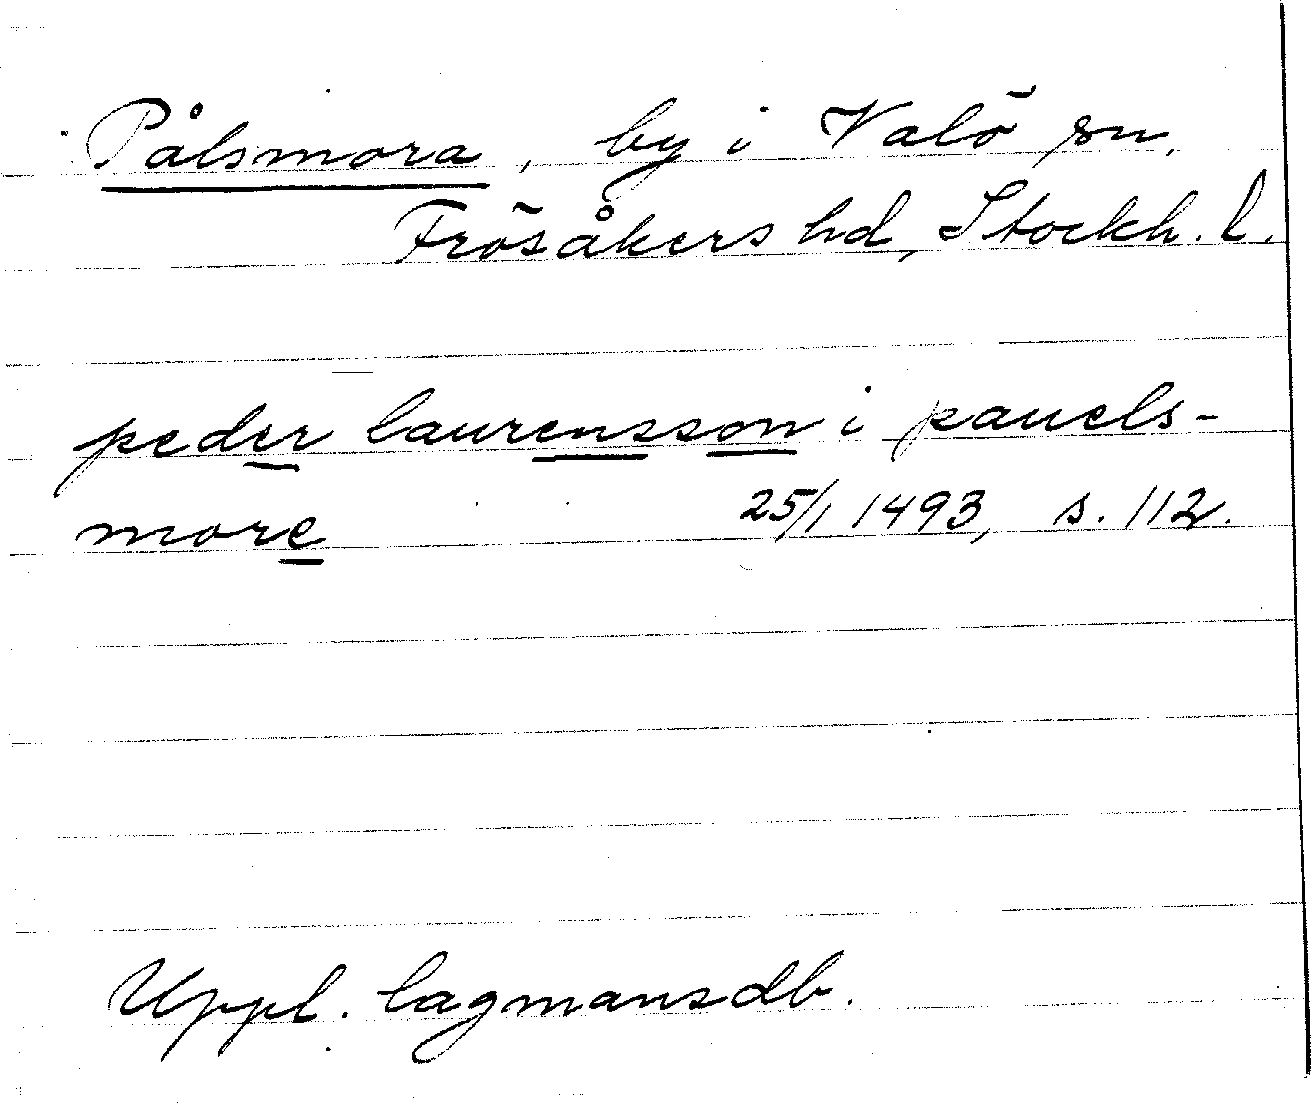 Pålsmora, by i Valö sn,
Frösåkers hd, Stockh. l.
peder laurensson i pauels-
more 25/1 1493, s. 112.
Uppl. lagmansdb.